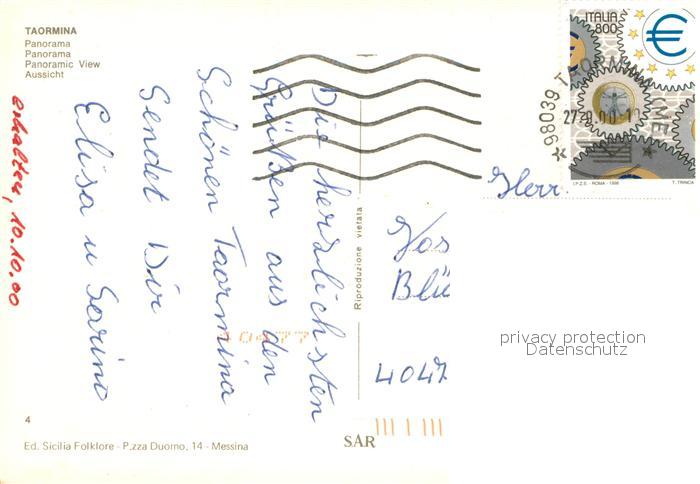 TAORMINA
Panorama
Panorama
Panoramic View
Aussicht
erhalten, 10.10.00
Die herzlichsten
Grüßen aus den
Schönen Taormina
Sendet Dir
Elisa u Savino
ITALIA
800
€
I.P.Z.S. - ROMA - 1998
T. TRINCA
98039
Herr
Vos
Blü
4047
Riproduzione vietata
privacy protection
Datenschutz
4
Ed. Sicilia Folklore - P.zza Duomo, 14 - Messina
SAR